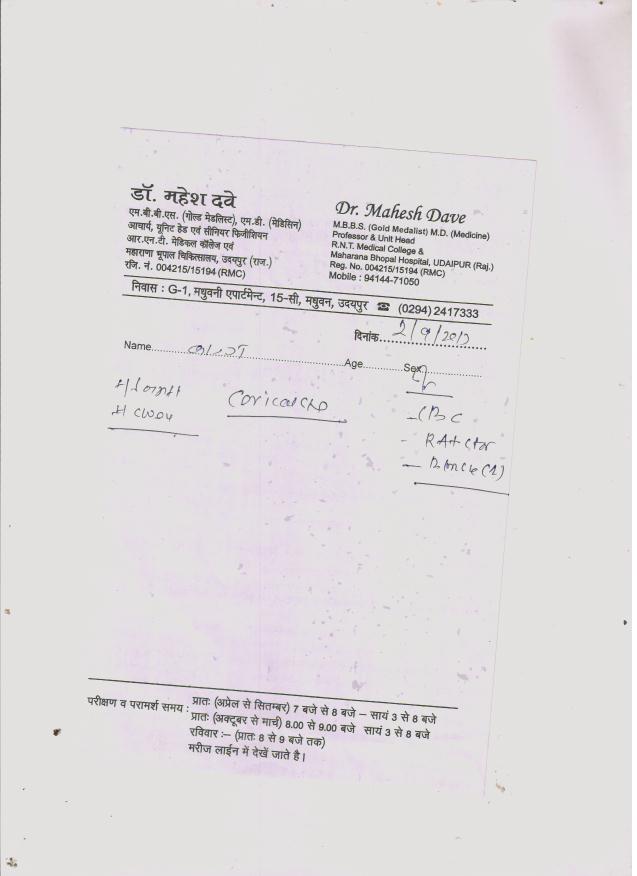 डॉ. महेश दवे
एम.बी.बी.एस. (गोल्ड मेडलिस्ट), एम.डी. (मेडिसिन)
आचार्य, यूनिट हेड एवं सीनियर फिजीशियन
आर.एन.टी. मेडिकल कॉलेज एवं
महाराणा भूपाल चिकित्सालय, उदयपुर (राज.)
रजि. नं. 004215/15194 (RMC)
Dr. Mahesh Dave
M.B.B.S. (Gold Medalist) M.D. (Medicine)
Professor & Unit Head
R.N.T. Medical College &
Maharana Bhopal Hospital, UDAIPUR (Raj.)
Reg. No. 004215/15194 (RMC)
Mobile : 94144-71050
निवास : G-1, मधुवनी एपार्टमेन्ट, 15-सी, मधुवन, उदयपुर ☎ (0294) 2417333
दिनांक
Name Age Sex
CBC
परीक्षण व परामर्श समय : प्रातः (अप्रेल से सितम्बर) 7 बजे से 8 बजे – सायं 3 से 8 बजे
प्रातः (अक्टूबर से मार्च) 8.00 से 9.00 बजे सायं 3 से 8 बजे
रविवार :– (प्रातः 8 से 9 बजे तक)
मरीज लाईन में देखें जाते है।